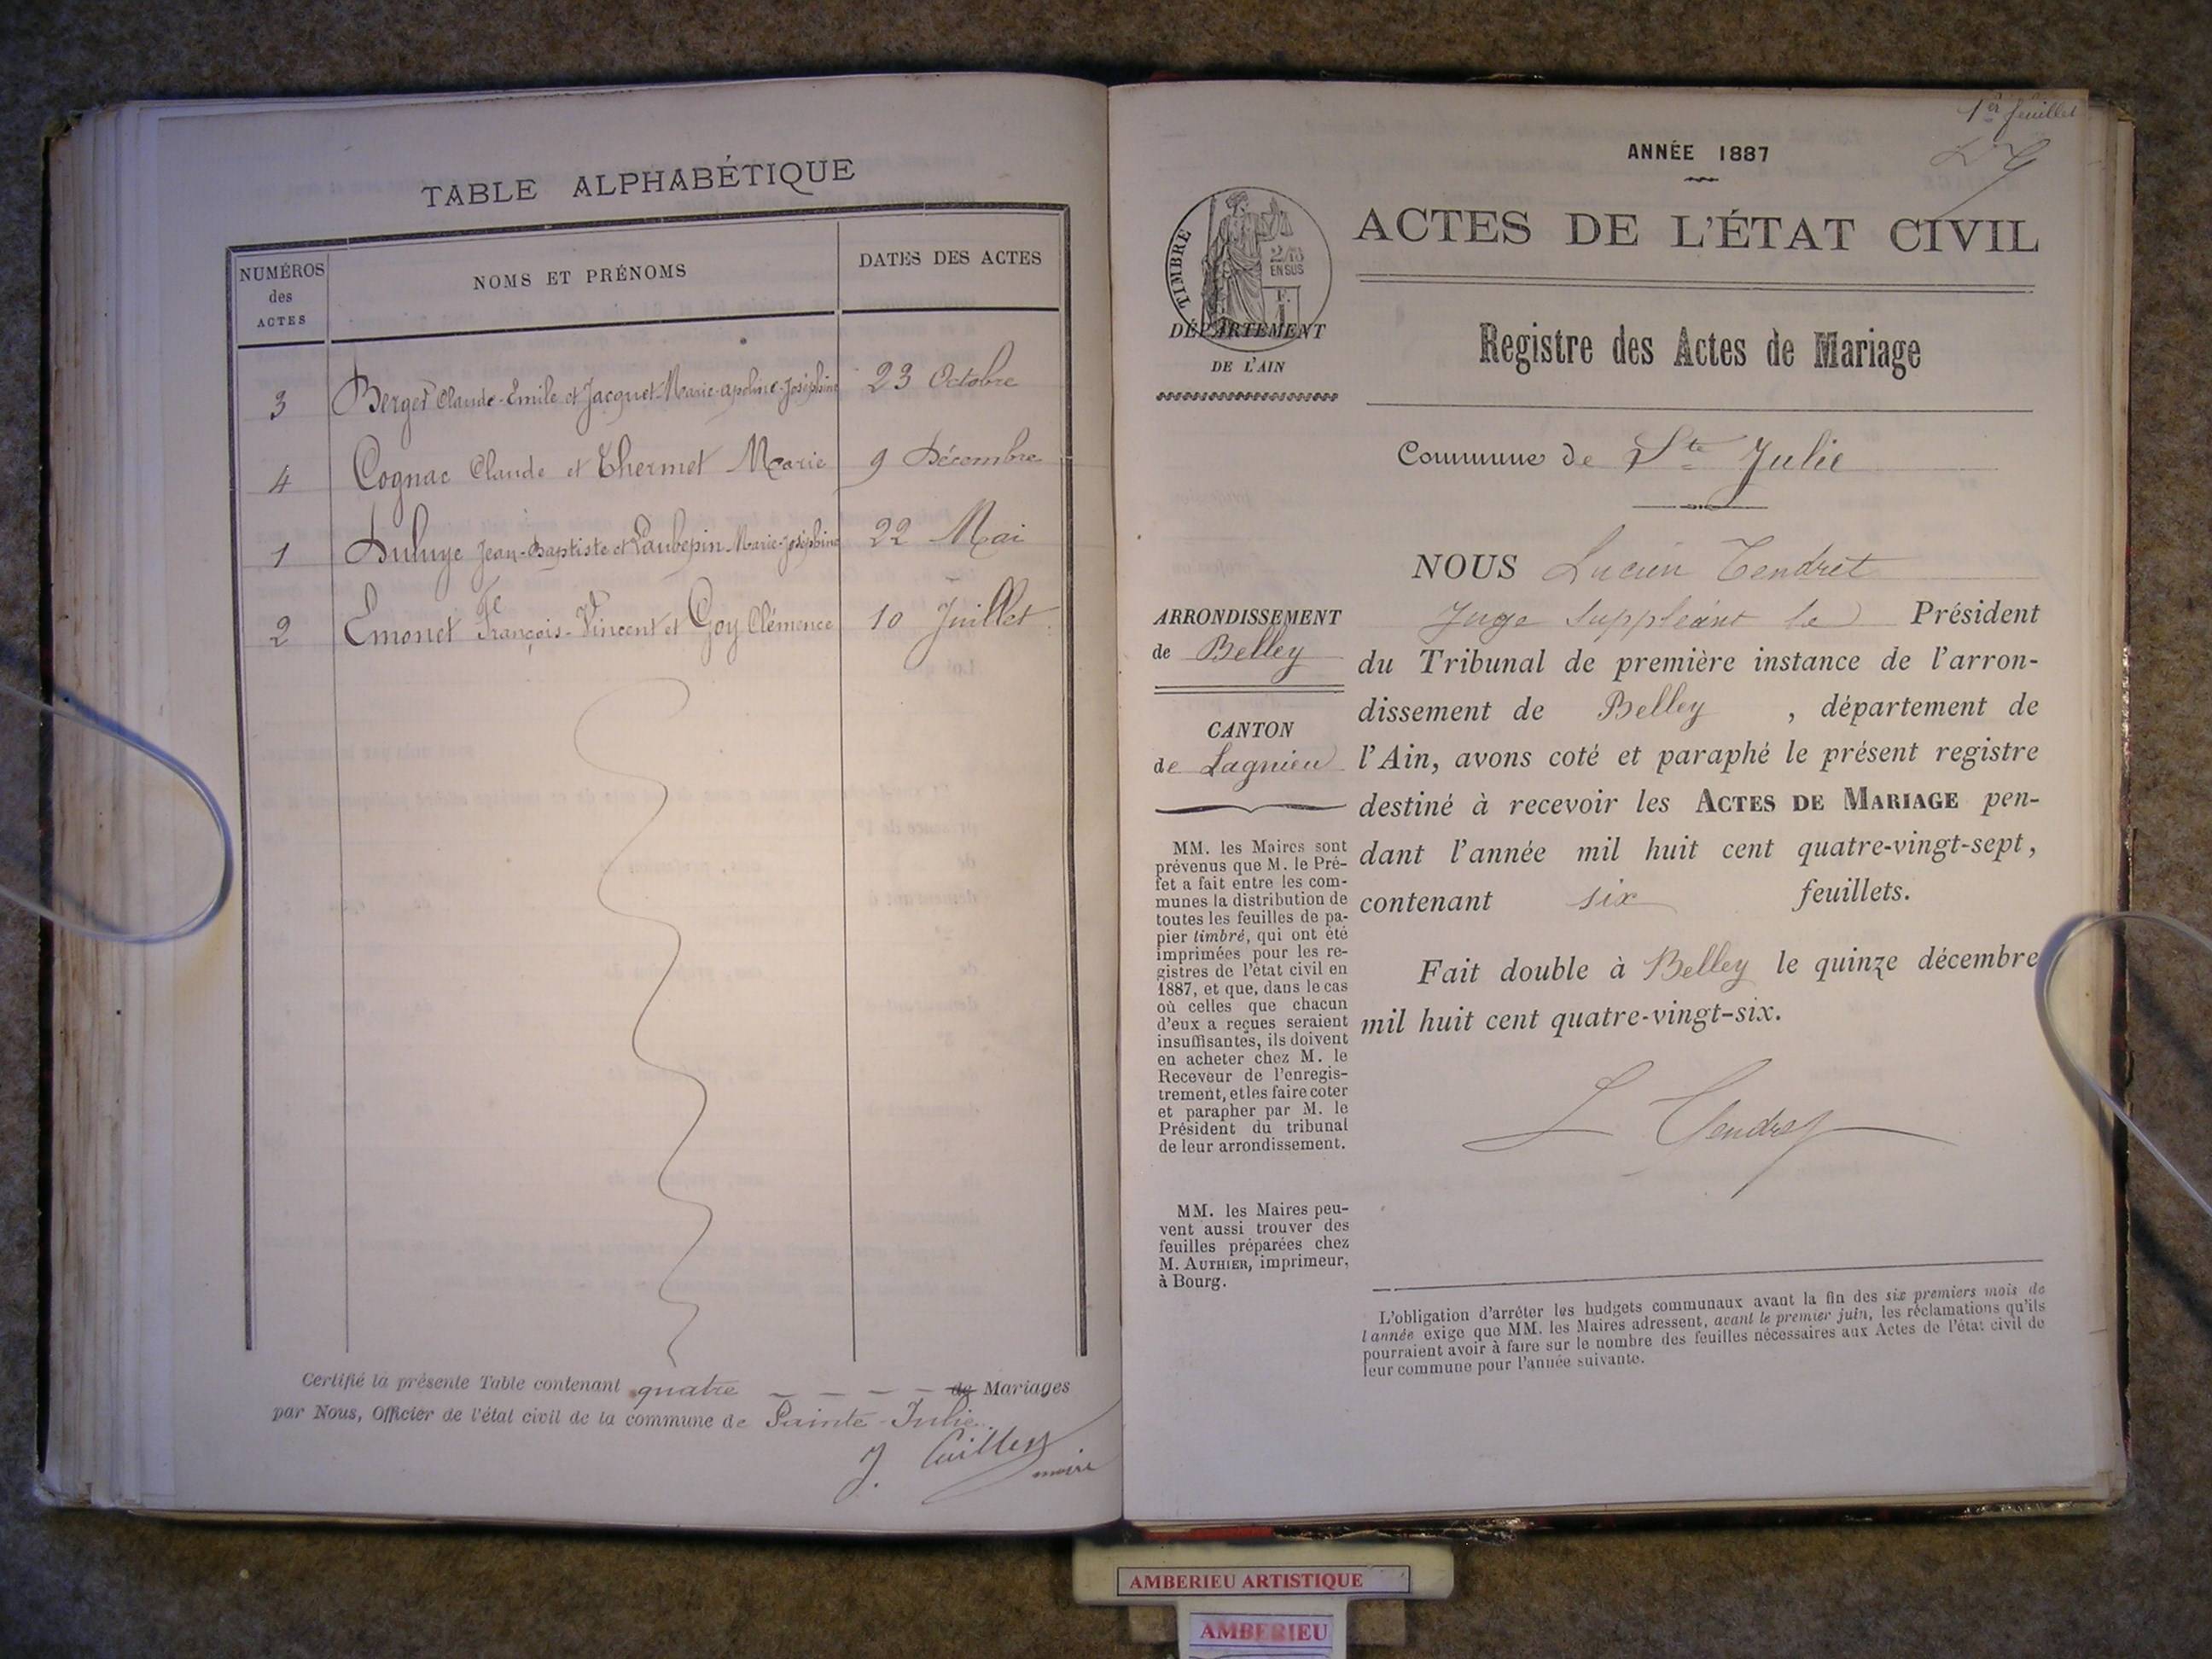 TABLE ALPHABÉTIQUE
NUMÉROS
des
ACTES
NOMS ET PRÉNOMS
DATES DES ACTES
3 Berger Claude-Emile et Jacquet Marie-apoline-Joséphine 23 Octobre
4 Cognac Claude et Thermet Marie 9 Décembre
1 Jean-Baptiste et Laubepin Marie-Joséphine 22 Mai
2 Emonet François-Vincent et Goy Clémence 10 Juillet
Certifié la présente Table contenant quatre de Mariages
par Nous, Officier de l'état civil de la commune de Sainte-Julie.
J.
maire
1er feuillet
ANNÉE 1887
TIMBRE
2/10
EN SUS
ACTES DE L'ÉTAT CIVIL
DÉPARTEMENT
DE L'AIN
Registre des Actes de Mariage
Commune de Ste Julie
ARRONDISSEMENT
de Belley
CANTON
de Lagnieu
MM. les Maires sont
prévenus que M. le Pré-
fet a fait entre les com-
munes la distribution de
toutes les feuilles de pa-
pier timbré, qui ont été
imprimées pour les re-
gistres de l'état civil en
1887, et que, dans le cas
où celles que chacun
d'eux a reçues seraient
insuffisantes, ils doivent
en acheter chez M. le
Receveur de l'enregis-
trement, et les faire coter
et parapher par M. le
Président du tribunal
de leur arrondissement.
MM. les Maires peu-
vent aussi trouver des
feuilles préparées chez
M. AUTHIER, imprimeur,
à Bourg.
NOUS Lucien Tendret
Juge suppléant le Président
du Tribunal de première instance de l'arron-
dissement de Belley, département de
l'Ain, avons coté et paraphé le présent registre
destiné à recevoir les ACTES DE MARIAGE pen-
dant l'année mil huit cent quatre-vingt-sept,
contenant six feuillets.
Fait double à Belley le quinze décembre
mil huit cent quatre-vingt-six.
L Tendret
L'obligation d'arrêter les budgets communaux avant la fin des six premiers mois de
l'année exige que MM. les Maires adressent, avant le premier juin, les réclamations qu'ils
pourraient avoir à faire sur le nombre des feuilles nécessaires aux Actes de l'état civil de
leur commune pour l'année suivante.
AMBERIEU ARTISTIQUE
AMBERIEU